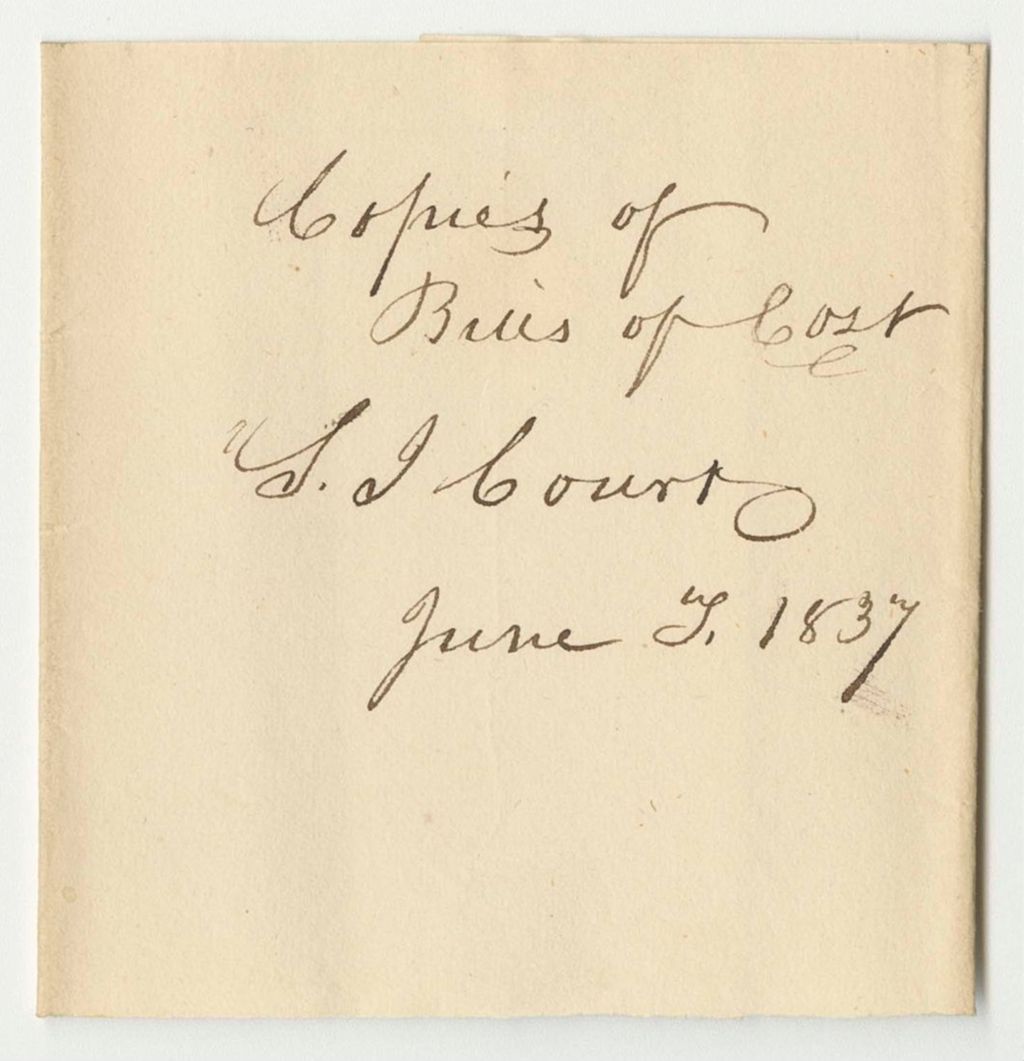 Copies of
Bills of Cost
S. J Court
June T. 1837